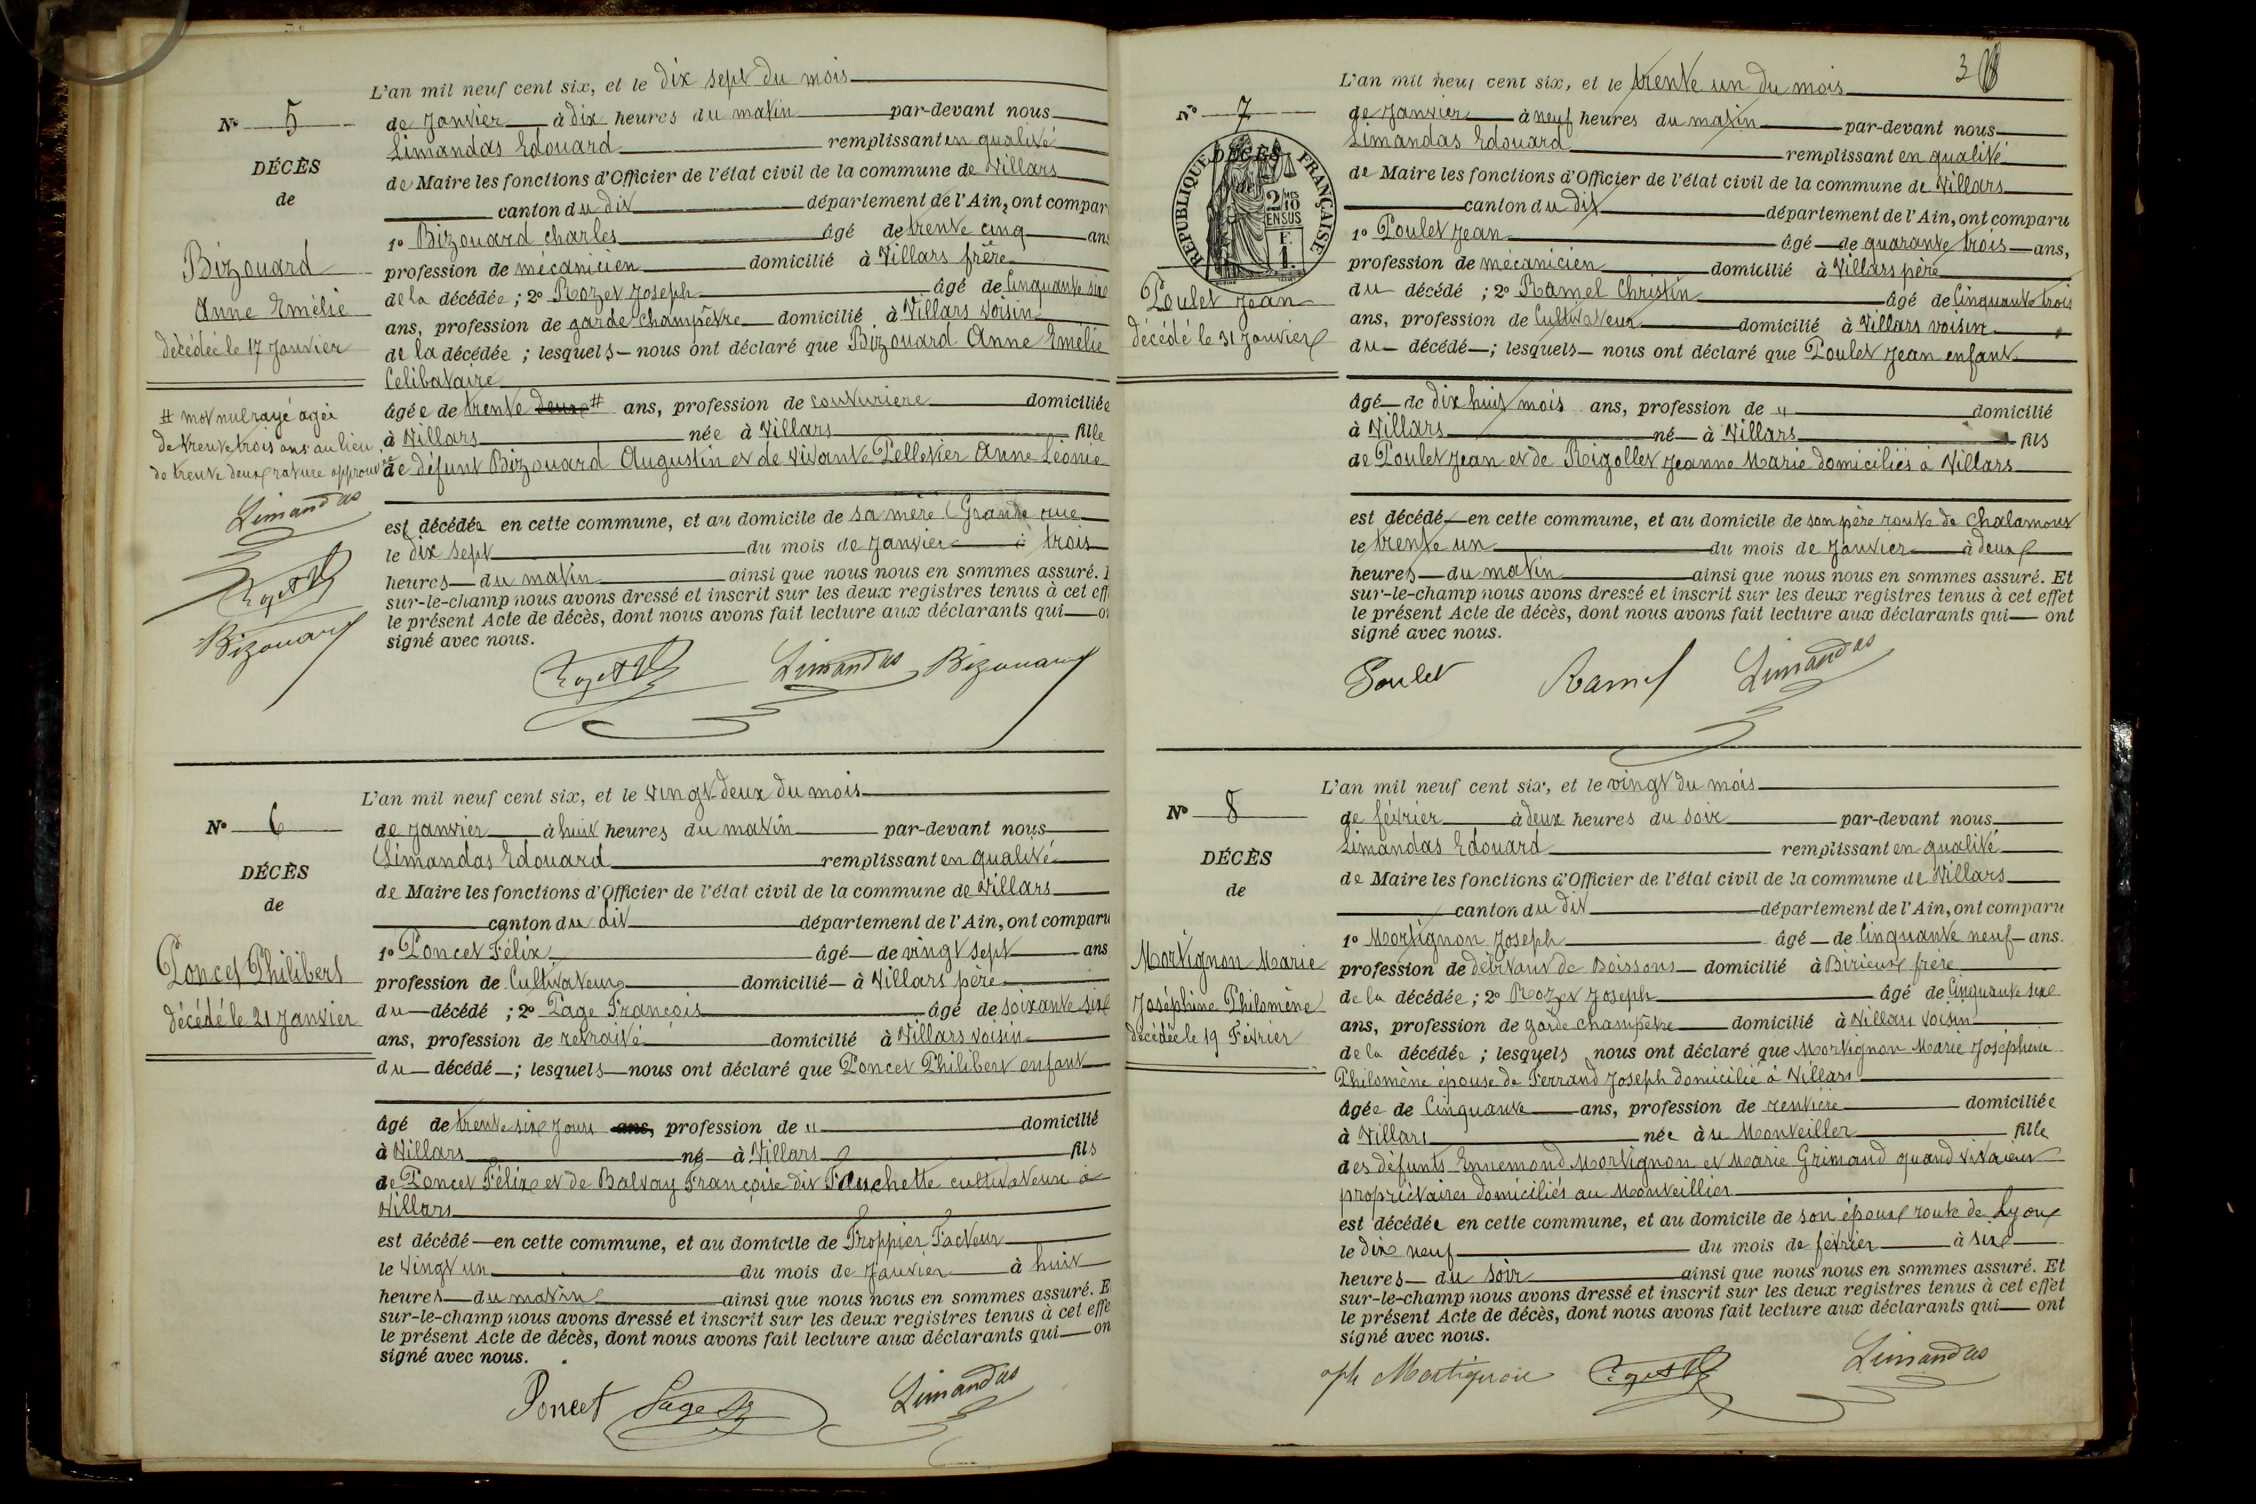 L'an mil neuf cent six, et le dix sept du mois
N° 5
de Janvier à dix heures du matin par-devant nous
Limandas Edouard remplissant en qualité
DÉCÈS
de Maire les fonctions d'Officier de l'état civil de la commune de Villars
de
canton du dit département de l'Ain, ont compar
1° Bizouard Charles âgé de trente cinq ans
Bizouard
profession de mécanicien domicilié à Villars frère
Anne Emélie
de la décédée ; 2° Rozet Joseph âgé de Cinquante six
ans, profession de garde champêtre domicilié à Villars voisin
décédée le 17 Janvier
de la décédée ; lesquels nous ont déclaré que Bizouard Anne Emélie
Célibataire
# mot nul rayé agée
de trente trois ans au lieu
de trente deux rature approuvée
Limandas
Rozet
Bizouard
âgée de trente deux # ans, profession de couturière domiciliée
à Villars née à Villars fille
de défunt Bizouard Augustin et de vivante Pelletier Anne Léonie
est décédée en cette commune, et au domicile de sa mère Grande rue
le dix sept du mois de Janvier à trois
heures du matin ainsi que nous nous en sommes assuré.
sur-le-champ nous avons dressé et inscrit sur les deux registres tenus à cet eff
le présent Acte de décès, dont nous avons fait lecture aux déclarants qui o
signé avec nous.
Rozet Limandas Bizouard
L'an mil neuf cent six, et le vingt-deux du mois
N° 6
de Janvier à huit heures du matin par-devant nous
Limandas Edouard remplissant en qualité
DÉCÈS
de Maire les fonctions d'Officier de l'état civil de la commune de Villars
de
canton du dit département de l'Ain, ont comparu
1° Poncet Félix âgé de vingt sept ans
Poncet Philibert
profession de Cultivateur domicilié à Villars père
décédé le 21 Janvier
du décédé ; 2° Page François âgé de soixante six
ans, profession de retraité domicilié à Villars voisin
du décédé ; lesquels nous ont déclaré que Poncet Philibert enfant
âgé de trente six jours ans, profession de " domicilié
à Villars né à Villars fils
de Poncet Félix et de Balvay Françoise dit Fauchette cultivateurs à
Villars
est décédé en cette commune, et au domicile de Troppier Facteur
le vingt un du mois de Janvier à huit
heures du matin ainsi que nous nous en sommes assuré. E
sur-le-champ nous avons dressé et inscrit sur les deux registres tenus à cet effe
le présent Acte de décès, dont nous avons fait lecture aux déclarants qui on
signé avec nous.
Poncet Page Limandas
3
L'an mil neuf cent six, et le trente un du mois
N° 7
de Janvier à neuf heures du matin par-devant nous
Limandas Edouard remplissant en qualité
DÉCÈS
de
RÉPUBLIQUE FRANÇAISE
2/10 EN SUS
F. 1.
de Maire les fonctions d'Officier de l'état civil de la commune de Villars
canton du dit département de l'Ain, ont comparu
1° Poulet Jean âgé de quarante trois ans,
profession de mécanicien domicilié à Villars père
Poulet Jean
du décédé ; 2° Ramel Christin âgé de Cinquante trois
décédé le 31 Janvier
ans, profession de Cultivateur domicilié à Villars voisin
du décédé ; lesquels nous ont déclaré que Poulet Jean enfant
âgé de dix huit mois ans, profession de " domicilié
à Villars né à Villars fils
de Poulet Jean et de Rigollet Jeanne Marie domiciliés à Villars
est décédé en cette commune, et au domicile de son père route de Chalamont
le trente un du mois de Janvier à deux
heures du matin ainsi que nous nous en sommes assuré. Et
sur-le-champ nous avons dressé et inscrit sur les deux registres tenus à cet effet
le présent Acte de décès, dont nous avons fait lecture aux déclarants qui ont
signé avec nous.
Poulet Ramel Limandas
L'an mil neuf cent six, et le vingt du mois
N° 8
de février à deux heures du soir par-devant nous
Limandas Edouard remplissant en qualité
DÉCÈS
de Maire les fonctions d'Officier de l'état civil de la commune de Villars
de
canton du dit département de l'Ain, ont comparu
1° Mortignon Joseph âgé de Cinquante neuf ans.
Mortignon Marie
profession de débitant de Boissons domicilié à Birieux frère
Joséphine Philomène
de la décédée ; 2° Rozet Joseph âgé de Cinquante six
décédée le 19 Février
ans, profession de garde champêtre domicilié à Villars voisin
de la décédée ; lesquels nous ont déclaré que Mortignon Marie Joséphine
Philomène épouse de Ferrand Joseph domicilié à Villars
âgée de Cinquante ans, profession de rentière domiciliée
à Villars née à u Montellier fille
des défunts Ennemond Mortignon et Marie Grimand quand vivaient
propriétaires domiciliés au Montveillier
est décédée en cette commune, et au domicile de son époux route de Lyon
le dix neuf du mois de février à six
heures du soir ainsi que nous nous en sommes assuré. Et
sur-le-champ nous avons dressé et inscrit sur les deux registres tenus à cet effet
le présent Acte de décès, dont nous avons fait lecture aux déclarants qui ont
signé avec nous.
oph Mortignon Rozet Limandas